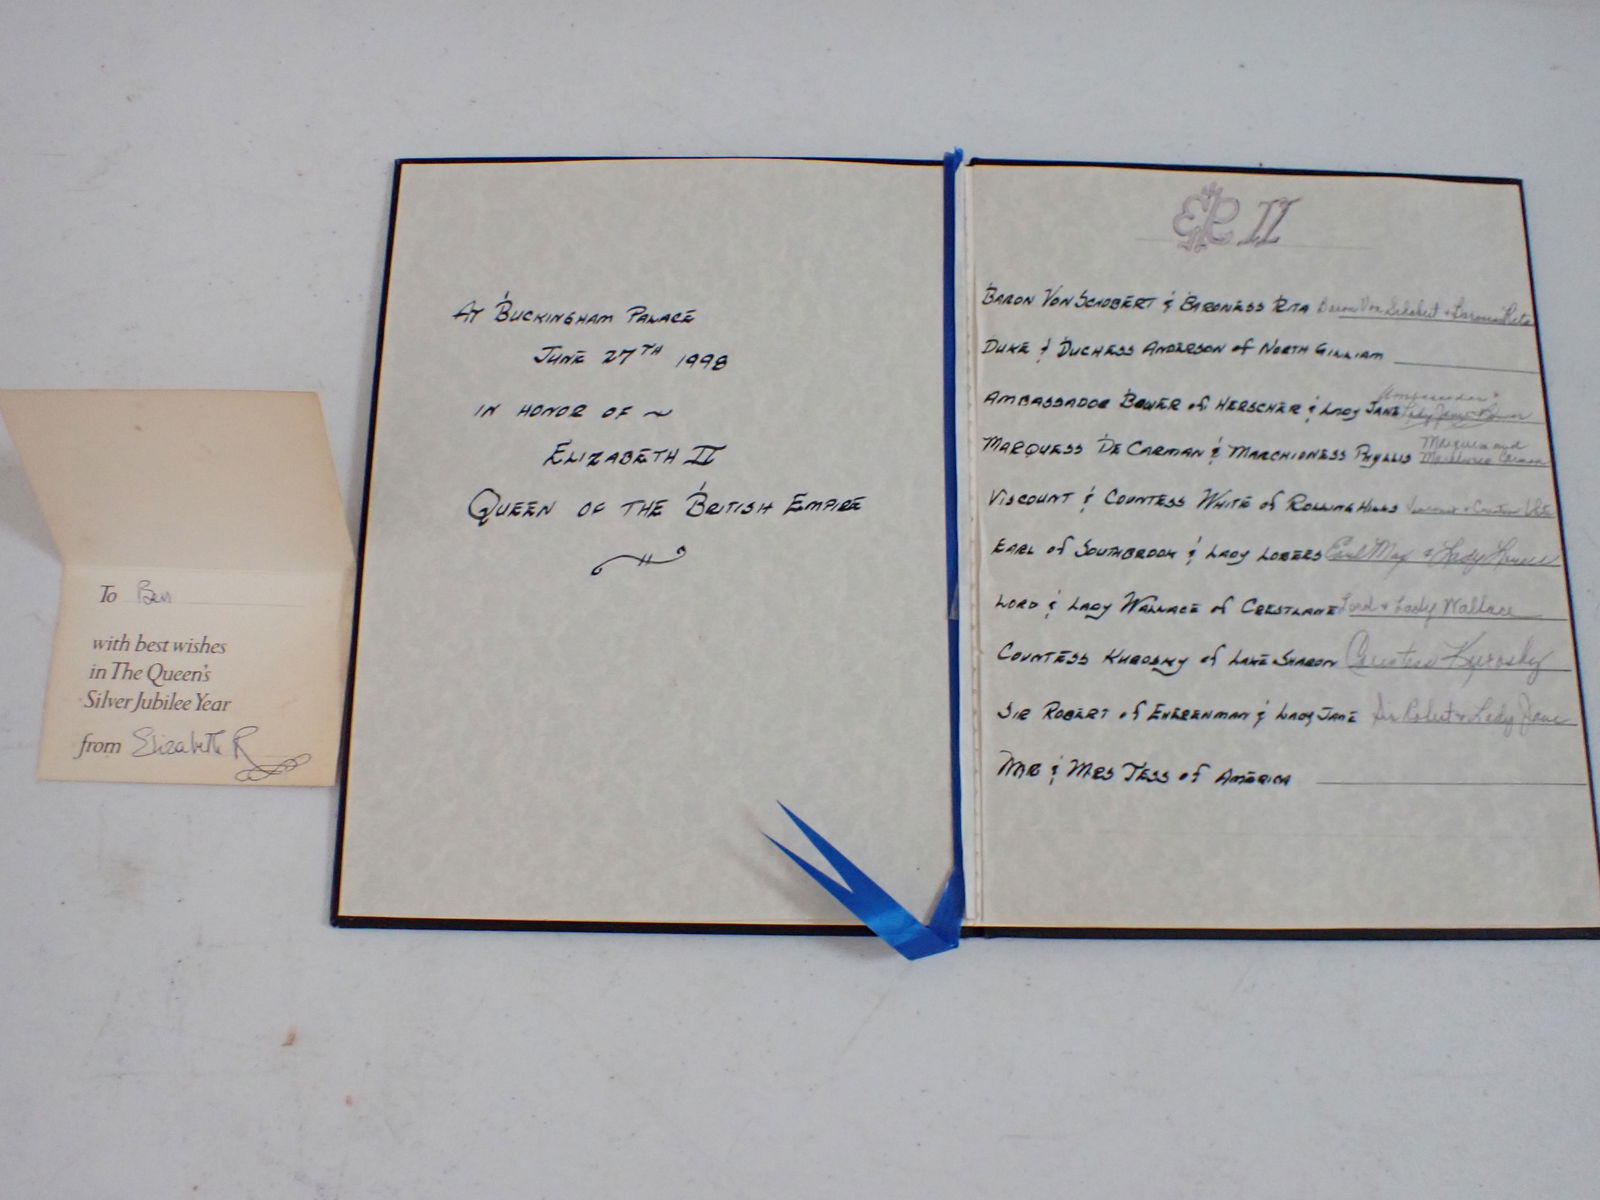 To Ben
with best wishes
in The Queen's
Silver Jubilee Year
from Elizabeth R
At Buckingham Palace
June 27th 1998
in honor of ~
Elizabeth II
Queen of the British Empire
ER II
Baron Von Schobert & Baroness Rita Baron Von Schobert & Baroness Rita
Duke & Duchess Anderson of North Gilliam
Ambassador &
Ambassador Bower of Herscher & Lady Jane Lady Jane Bower
Marquess and
Marquess De Carman & Marchioness Phyllis Marchioness Carman
Viscount & Countess White of Rolling Hills Viscount & Countess White
Earl of Southbrook & Lady Lobers Earl Max & Lady
Lord & Lady Wallace of Crestlane Lord & Lady Wallace
Countess Kurosky of Lake Sharon Countess Kurosky
Sir Robert of & Lady Jane Sir Robert & Lady Jane
Mr & Mrs Tess of America